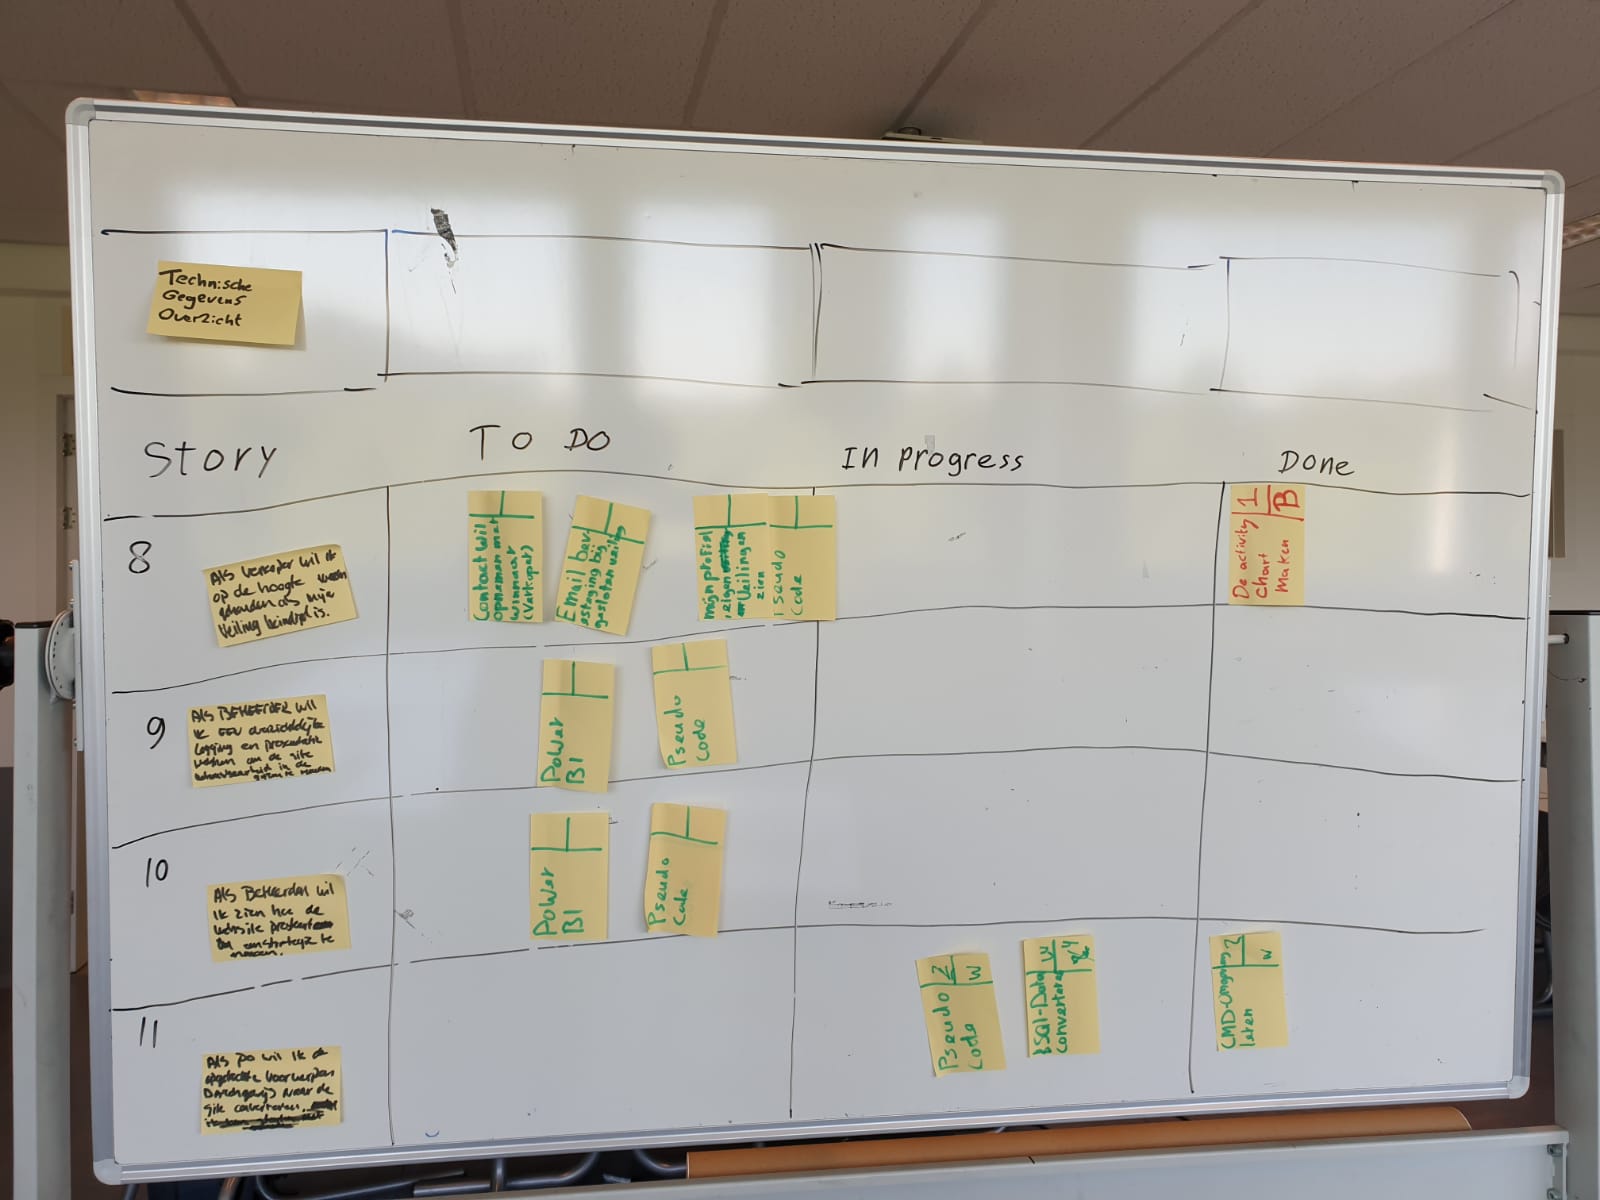 Technische
Gegevens
Overzicht
Story
To Do
In progress
Done
8
Als verkoper wil ik
op de hoogte
gehouden als mijn
veiling beindigd is.
Contact wil
opnemen met
winnaar
(Verkoper)
Email bev
estiging bij
gesloten veiling
mijn profiel
eigen
veilingen
zien
Pseudo
Code
De activity
Chart
Maken
1
B
9
Als BEHEERDER wil
ik een overzichtelijke
logging en
om de site
in de
Power
BI
Pseudo
Code
10
Als Beheerder wil
ik zien hoe de
website
te
maken.
Power
BI
Pseudo
Code
11
Als PO wil ik de
voorwerpen
naar de
site converteren.
Pseudo
Code
2
W
SQL-Data
converteren
W
CMD-Omgeving
leren
2
W